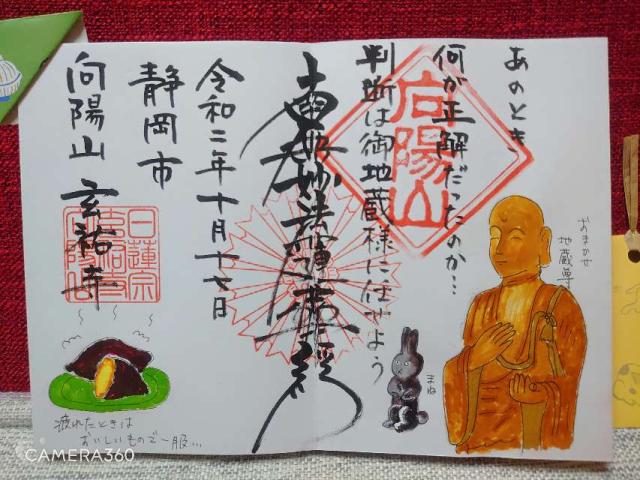 あのとき
何が正解だったのか…
判断は御地蔵様に任せよう
向陽山
おまかせ
地蔵尊
まね
南無妙法蓮華経
令和二年十月十七日
静岡市
向陽山 玄祐寺
日蓮宗
疲れたときは
おいしいもので一服…
CAMERA360